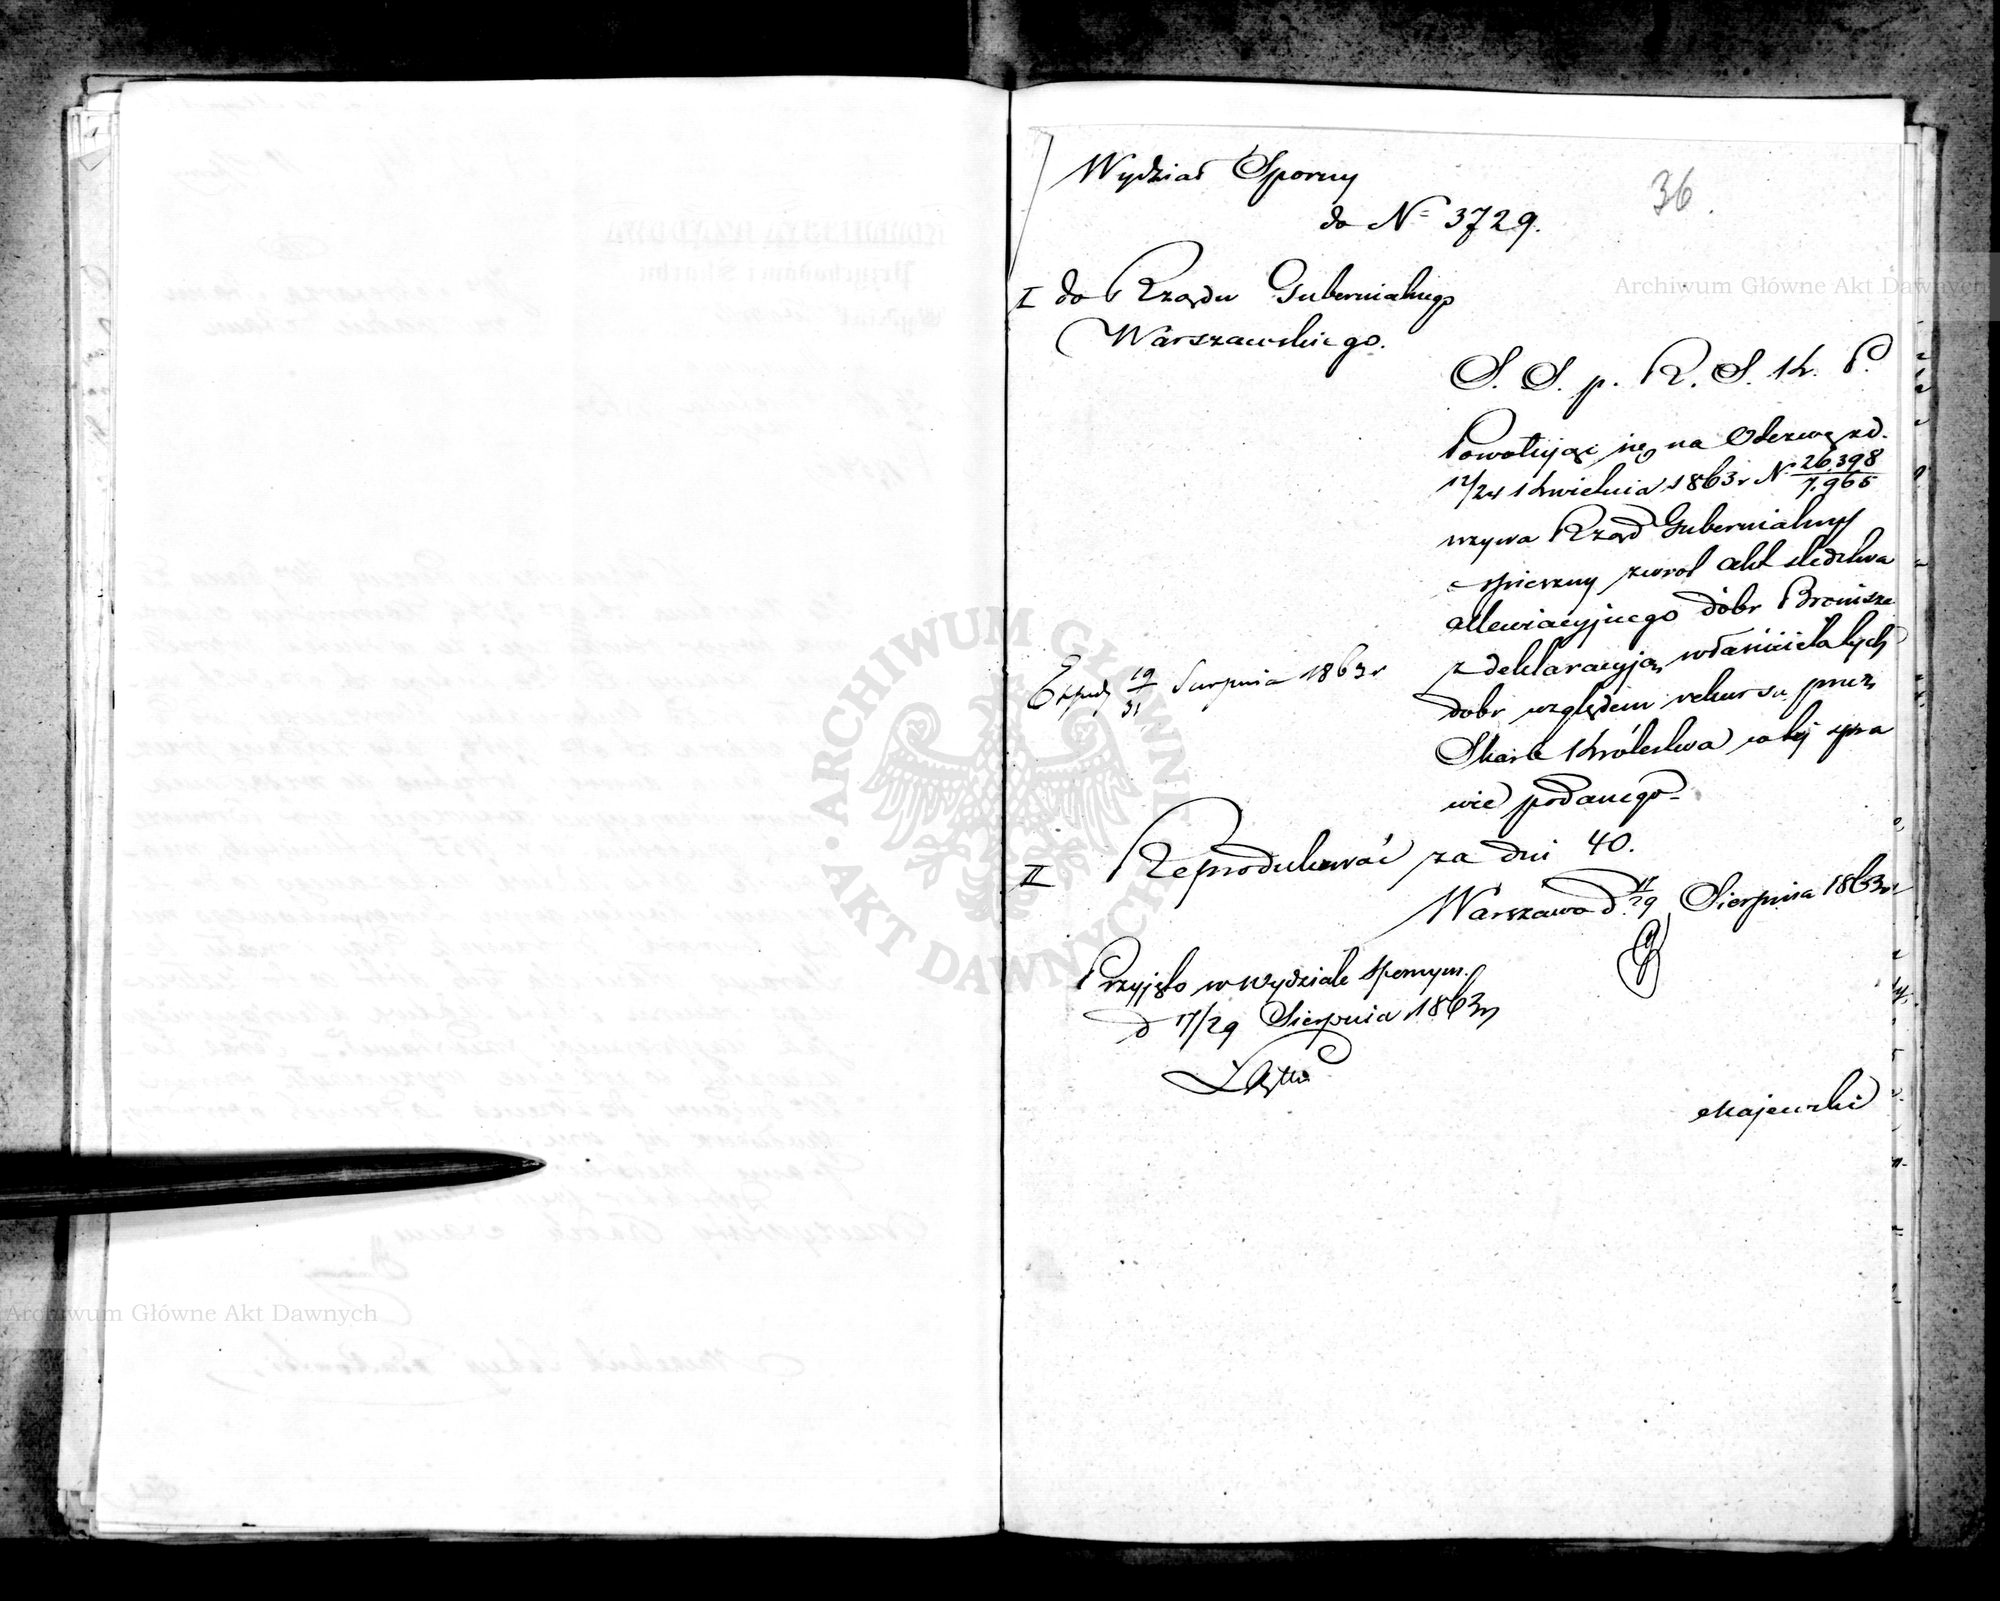 Wydział Sporny
36.
do N= 3729.
I do Rządu Gubernialnego
Warszawskiego.
S. S. p. K. S. Kr. P.
Powołując się na Odezwę z d.
12/24 Kwietnia 1863 r N. 26.398/7.965
wzywa Rząd Gubernialny
o spieszny zwrot akt śledztwa
allewiacyjnego dóbr Bronisze
z deklaracyją właścicieli tych
dóbr względem rekursu przez
Skarb Królestwa w tej spra
wie podanego-
Exped 19/31 Sierpnia 1863 r
II Reprodukować za dni 40.
Warszawa d. 17/29 Sierpnia 1863 r
Przyjęto w Wydziale Spornym.
d 17/29 Sierpnia 1863 r
Majewski
Archiwum Główne Akt Dawnych
Archiwum Główne Akt Dawnych
ARCHIWUM GŁÓWNE • AKT DAWNYCH •